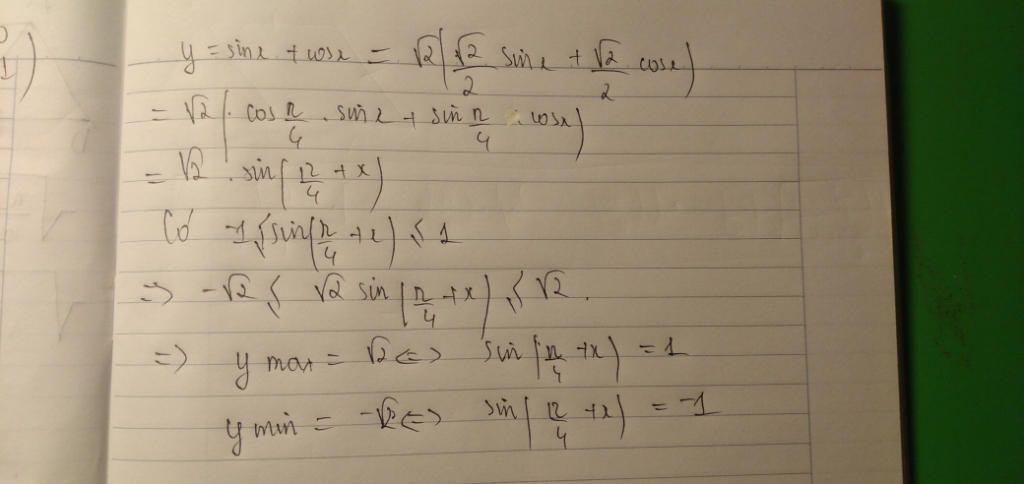 y = sinx + cosx = √2(√2/2 sinx + √2/2 cosx)
= √2(. cos π/4 . sinx + sin π/4 . cosx)
= √2 . sin(π/4 + x)
Có -1 ≤ sin(π/4 + x) ≤ 1
=> -√2 ≤ √2 sin(π/4 + x) ≤ √2.
=> y max = √2 <=> sin(π/4 + x) = 1
y min = -√2 <=> sin(π/4 + x) = -1